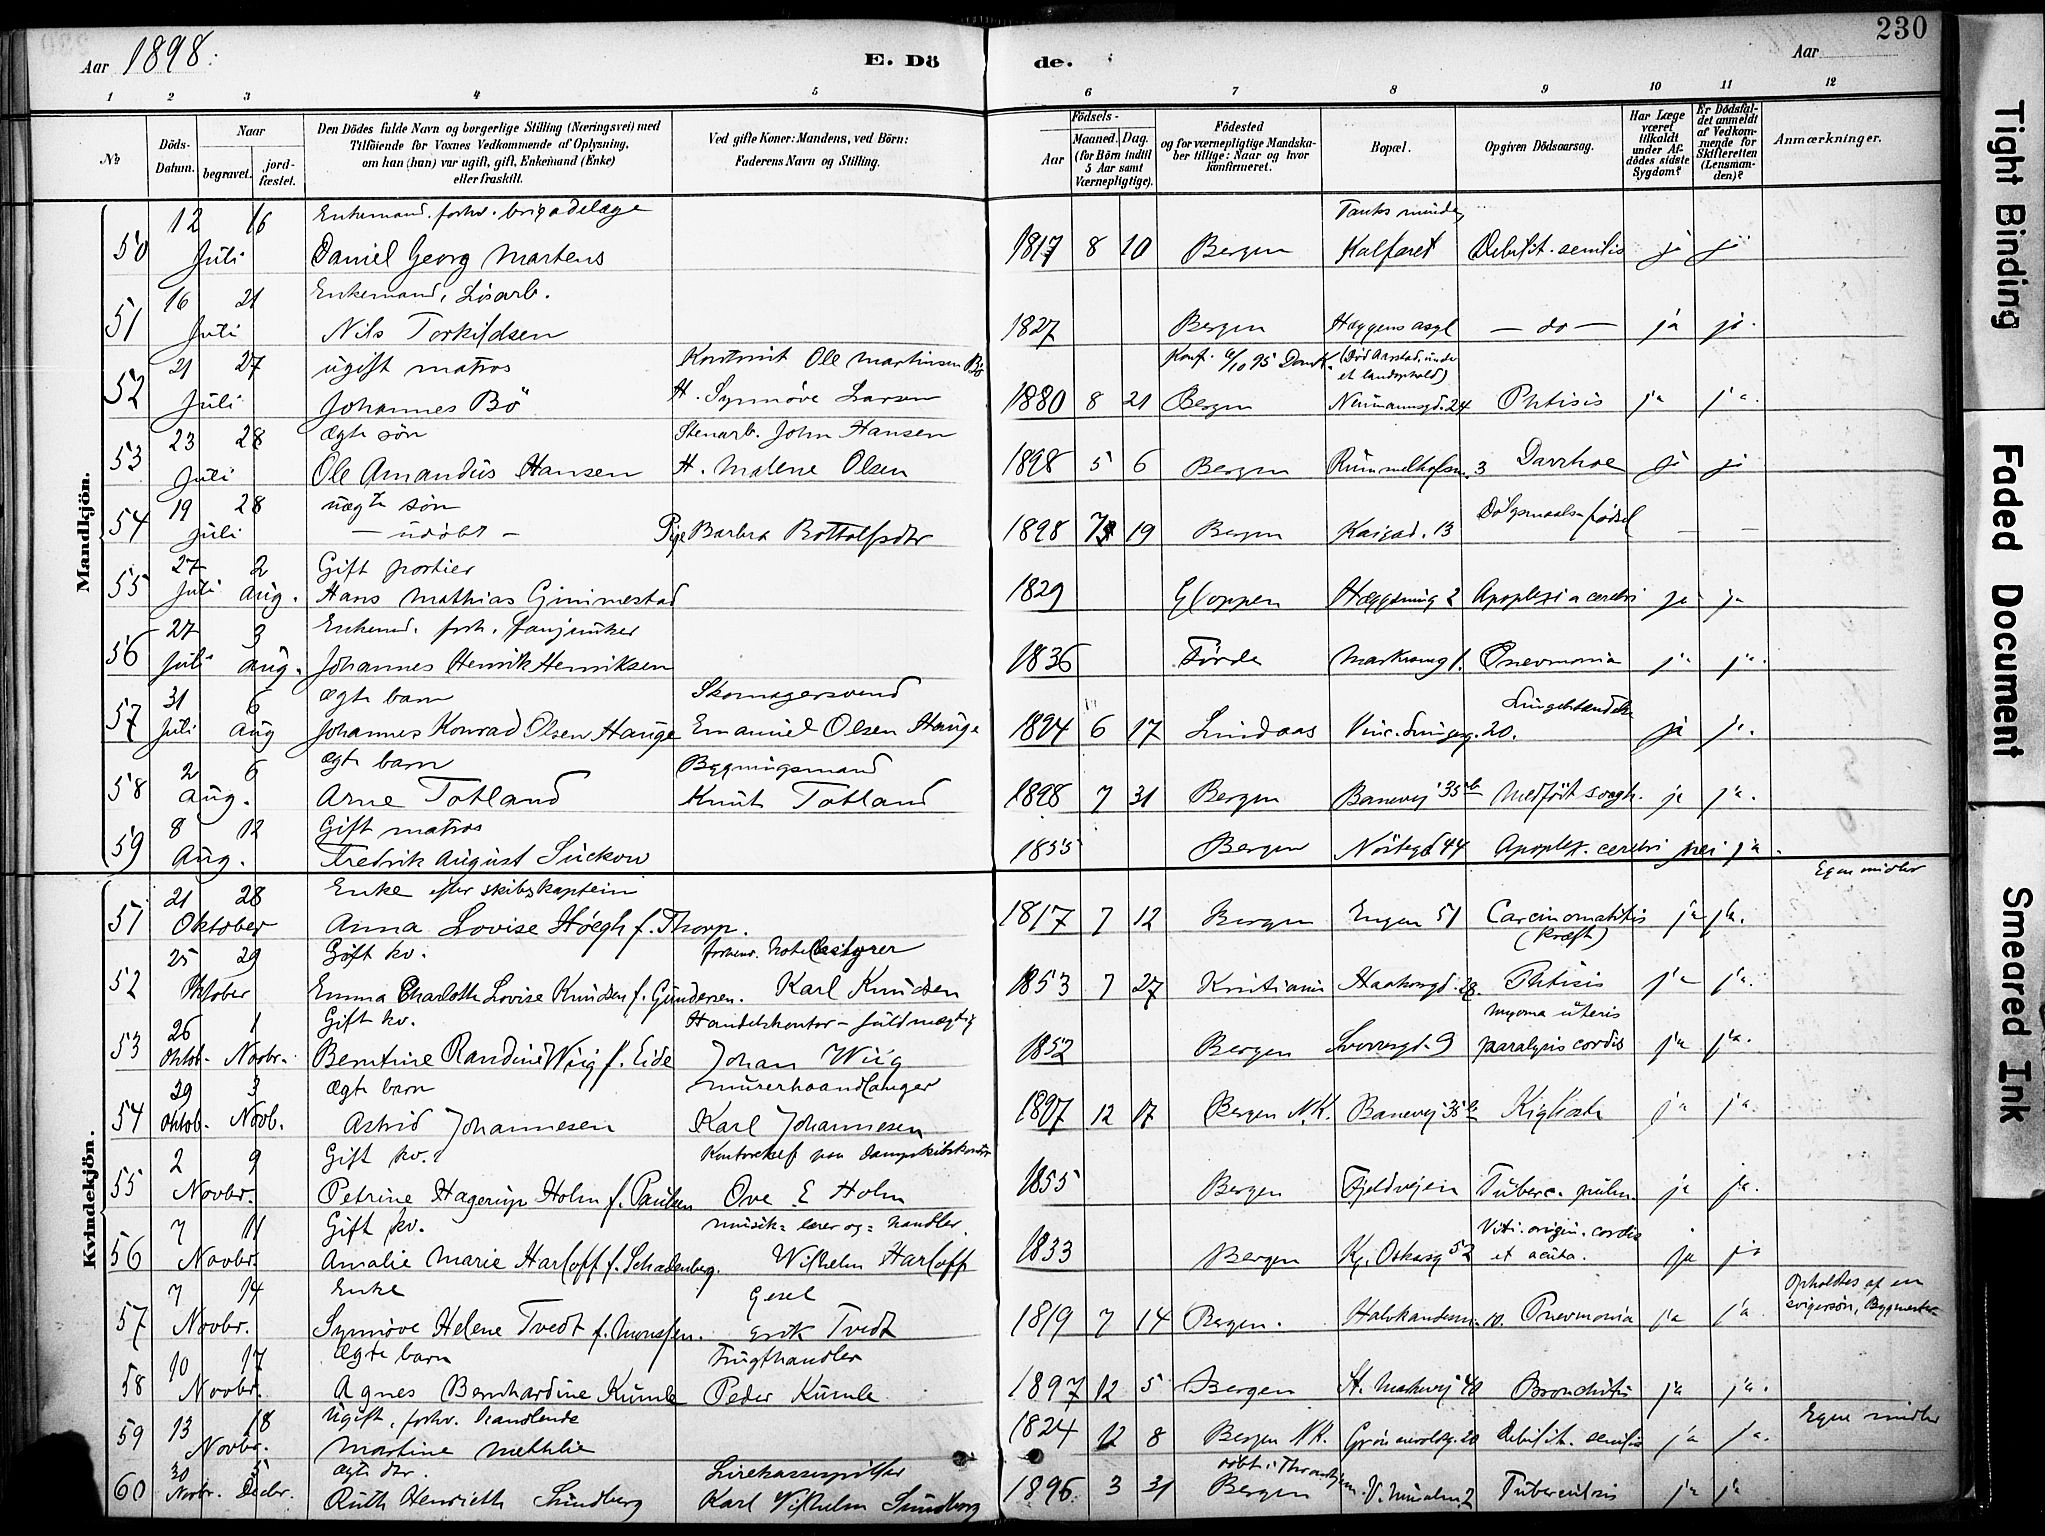 230
Aar 1898. E. Dö de. Aar
1 2 3 4 5 6 7 8 9 10 11 12
№ Döds-Datum. Naar begravet. jord-fæstet. Den Dödes fulde Navn og borgerlige Stilling (Næringsvei) med Tilföiende for Voxnes Vedkommende af Oplysning, om han (hun) var ugift, gift, Enkemand (Enke) eller fraskilt. Ved gifte Koner: Mandens, ved Börn: Faderens Navn og Stilling. Födsels- Aar Maaned. Dag. (for Börn indtil 5 Aar samt Værnepligtige). Födested og for værnepligtige Mandskaber tillige: Naar og hvor konfirmeret. Bopæl. Opgiven Dödsaarsag. Har Læge været tilkaldt under Afdödes sidste Sygdom? Er Dödsfaldet anmeldt af Vedkommende for Skifteretten (Lensmanden)? Anmærkninger.
Mandkjön.
12 16 Enkemand. forhv. brigadelæge Tanks minde,
50 Juli Daniel Georg Martens 1817 8 10 Bergen Kalfaret Debilit. senilis ja ja
16 21 Enkemand, Løsarb.
51 Juli Nils Torkildsen 1827 Bergen Hæggens asyl — do — ja ja.
21 27 ugift matros Ole Martinsen Bö Konf. 6/10 95 Domk. (Död Aarstad under et landophold)
52 Juli Johannes Bö H. Synnöve Larsen 1880 8 21 Bergen Neumannsgd. 24 Phtisis ja ja.
23 28 ægte søn Stenarb. John Hansen
53 Juli Ole Amandus Hansen H. Malene Olsen 1898 5 6 Bergen 3 ja ja
19 28 uægte søn
54 Juli — udöbt — Pige Barbra Bottolfsdtr 1898 7 19 Bergen Kaigad. 13 Dølgsmaals-födsel — —
27 2 Gift portier
55 Juli Aug. Hans Mathias Gimmestad 1829 Gloppen 2 Apoplexia cerebri ja ja
27 3 Enkemd. forh. fanejunker
56 Juli Aug. Johannes Henrik Henriksen 1836 Förde Pnevmonia ja ja.
31 6 ægte barn Skomagersvend
57 Juli Aug Johannes Konrad Olsen Hauge Emanuel Olsen Hauge 1894 6 17 Lindaas 20. ja ja.
2 6 ægte barn Bygningsmand
58 Aug. Arne Totland Knut Totland 1898 7 31 Bergen Banevej 35b Medfödt svagh. ja ja.
8 12 Gift matros
59 Aug. Fredrik August Suckow 1855 Bergen Nöstegd 44 Apoplex. cerebri nei ja.
Kvindekjön.
21 28 Enke efter skibskaptein Egne midler
51 Oktober Anna Lovise Høegh f. Thorp. 1817 7 12 Bergen Engen 51 Carcinomatitis (kræft) ja ja.
25 29 Gift kv. forhenv. hotelbestyrer
52 Oktober Emma Charlotte Lovise Knudsen f. Gundersen. Karl Knudsen 1853 7 27 Kristiania Haakonsgd. 28. Phtisis ja ja.
26 1 Gift kv. Handelskontor-fuldmægtig Myoma uteris
53 Oktob. Novbr. Berntine Randine Wiig f. Eide Johan Wiig 1852 Bergen Sverresgd. 9 paralysis cordis ja ja.
29 3 ægte barn murerhaandlanger
54 Oktob. Novb. Astrid Johannesen Karl Johannesen 1897 12 17 Bergen N.K. Banevej 35b Kighoste ja ja.
2 9 Gift kv. paa dampskibskontor
55 Novbr. Petrine Hagerup Holm f. Paulsen Ove E Holm 1855 Bergen Fjeldvejen Luberc. pulm. ja ja.
7 11 Gift kv. musik-lærer og-handler. Viti. origin. cordis
56 Novbr. Amalie Marie Harloff f. Schadenberg. Wilhelm Harloff 1833 Bergen Kg. Oskarsg 52 et acuta. ja ja
7 14 Enke Gesel Opholdtes af en svigersøn, Bygmester
57 Novbr. Synnöve Helene Tvedt f. Monssen. Erik Tvedt 1819 7 14 Bergen. 10. Pnevmonia ja ja
10 17 Ægte barn Frugthandler
58 Novbr. Agnes Bernhardine Kumle Peder Kumle 1897 12 5 Bergen 40 Bronchitis ja ja.
13 18 Ugift, forhv. handlende Egne midler
59 Novbr. Martine Methlie 1824 12 8 Bergen NK. 20 Debilit. senilis ja ja.
30 5 ægte dtr. Lirekassespiller döbt i Throndhjem.
60 Novbr. Decbr. Ruth Henriette Sundborg Karl Vilhelm Sundborg 1896 3 31 Bergen 2 Tuberculosis ja ja
Tight Binding
Faded Document
Smeared Ink